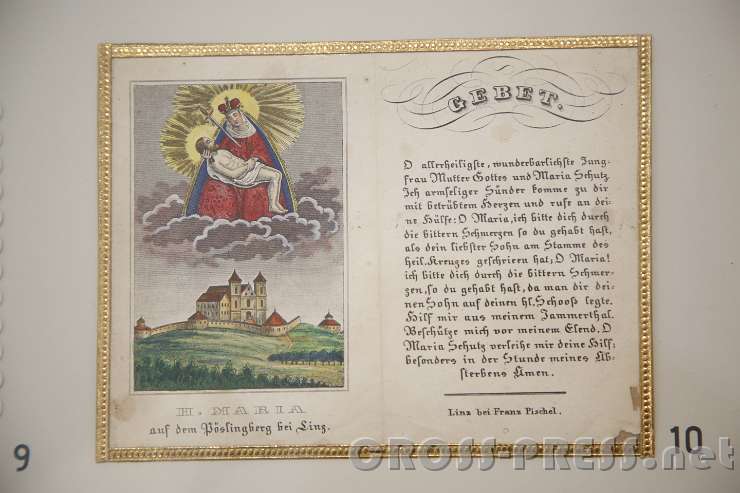 H. MARIA
auf dem Pöslingberg bei Linz.
GEBET.
O allerheiligste, wunderbarlichste Jung-
frau Mutter Gottes und Maria Schutz.
Ich armseliger Sünder komme zu dir
mit betrübtem Herzen und rufe an dei-
ne Hülfe: O Maria, ich bitte dich durch
die bittern Schmerzen so du gehabt hast,
als dein liebster Sohn am Stamme des
heil. Kreuzes geschrieen hat; O Maria!
ich bitte dich durch die bittern Schmer-
zen, so du gehabt hast, da man dir dei-
nen Sohn auf deinen hl. Schooß legte.
Hilf mir aus meinem Jammerthal.
Beschütze mich vor meinem Elend. O
Maria Schutz verleihe mir deine Hilf:
besonders in der Stunde meines Ab-
sterbens Amen.
Linz bei Franz Pischel.
9
10
GROSS-PRESS.net